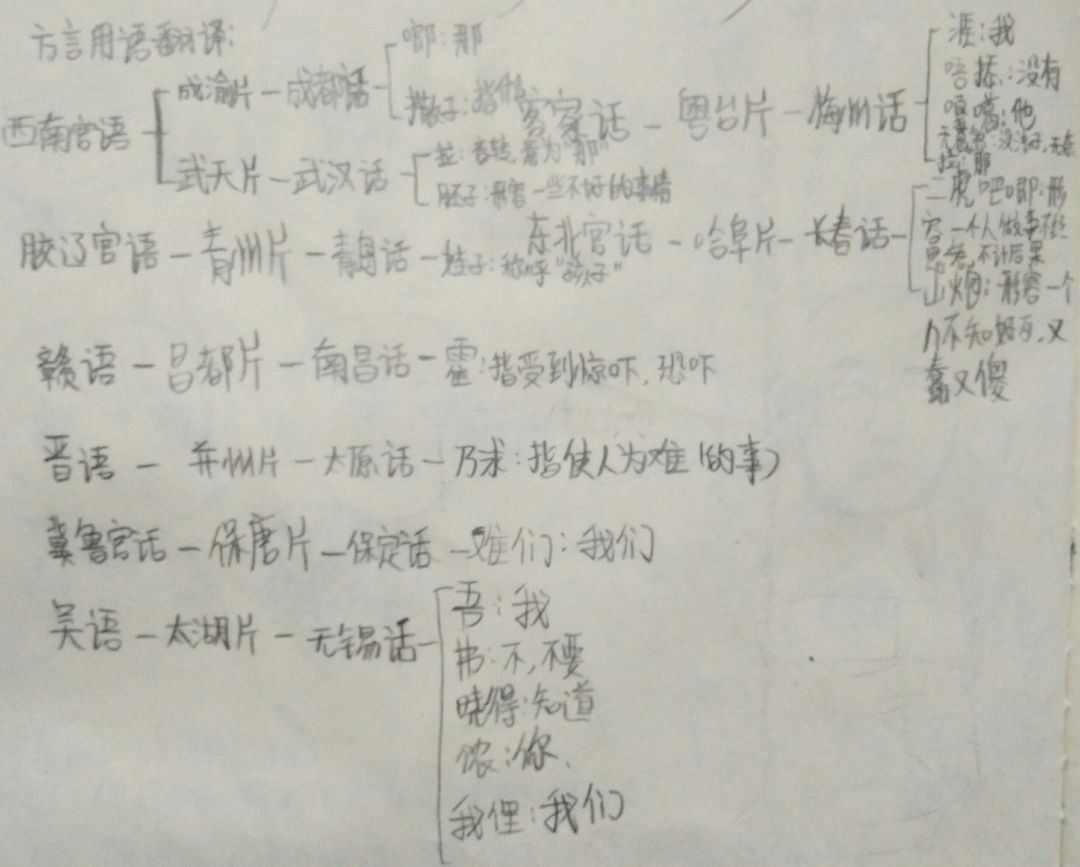 方言用语翻译:
西南官语
成渝片 — 成都话
嘟:那
武天片 — 武汉话
胚子:形容一些不好的事情
客家话 — 粤台片 — 梅州话
涯:我
唔 :没有
:他
:那
胶辽官语 — 青州片 — 青岛话 — 娃子:称呼“孩子”
东北官话 — 哈阜片 — 长春话
二虎吧唧:形
容一个人做事不经
思考,不计后果
山炮:形容一个
人不知好歹,又
蠢又傻
赣语 — 昌都片 — 南昌话 — 霍:指受到惊吓,恐吓
晋语 — 并州片 — 太原话 — 乃求:指使人为难(的事)
冀鲁官话 — 保唐片 — 保定话 — 难们:我们
吴语 — 太湖片 — 无锡话
吾:我
弗:不,不要
晓得:知道
侬:你.
我俚:我们